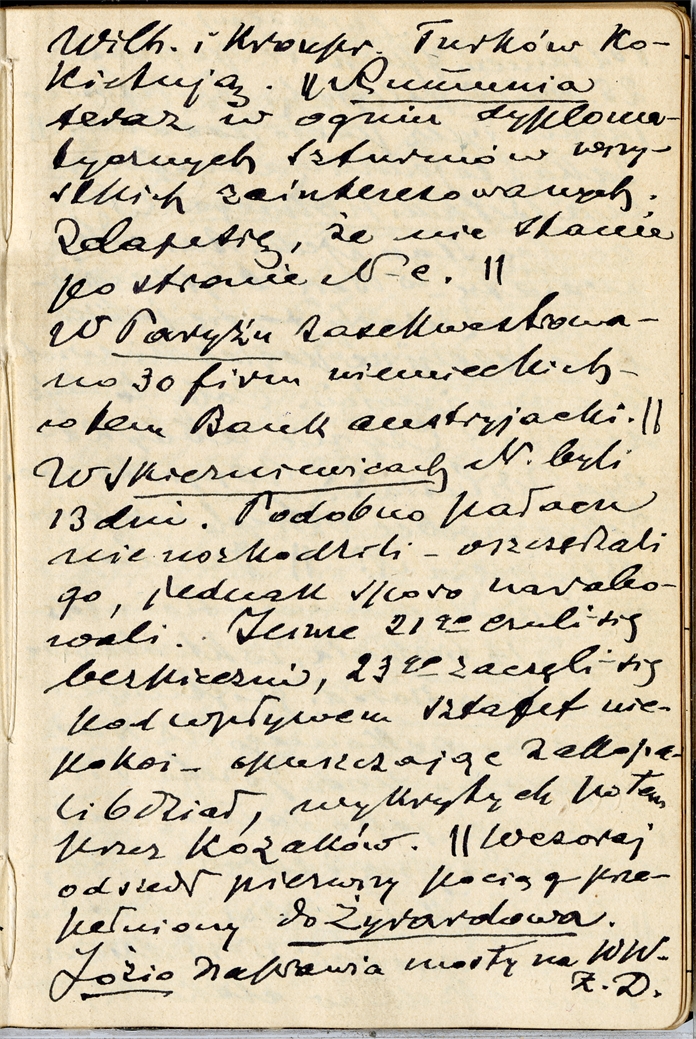 Wilh. i Kronpr. Turków ko-
kietują. || Rumunia
teraz w ogniu dyploma-
tycznych szturmów wszy-
stkich zainteresowanych.
Zdaje się, że nie stanie
po stronie N-c. ||
W Paryżu zasekwestrowa-
no 30 firm niemieckich -
potem Bank austryjacki. ||
W Skierniewicach N. byli
13 dni. Podobno pałacu
nie uszkodzili - oszczędzali
go, jednak sporo narabo-
wali. Jeszcze 21 go czuli się
bezpieczni, 23 go zaczęli się
pod wpływem sztafet nie-
pokoić opuszczając zakopa-
li 6 dział, wykrytych potem
przez kozaków. || Wczoraj
odszedł pierwszy pociąg prze-
pełniony do Żyrardowa.
Józio naprawia mosty na WW.
Ż.D.